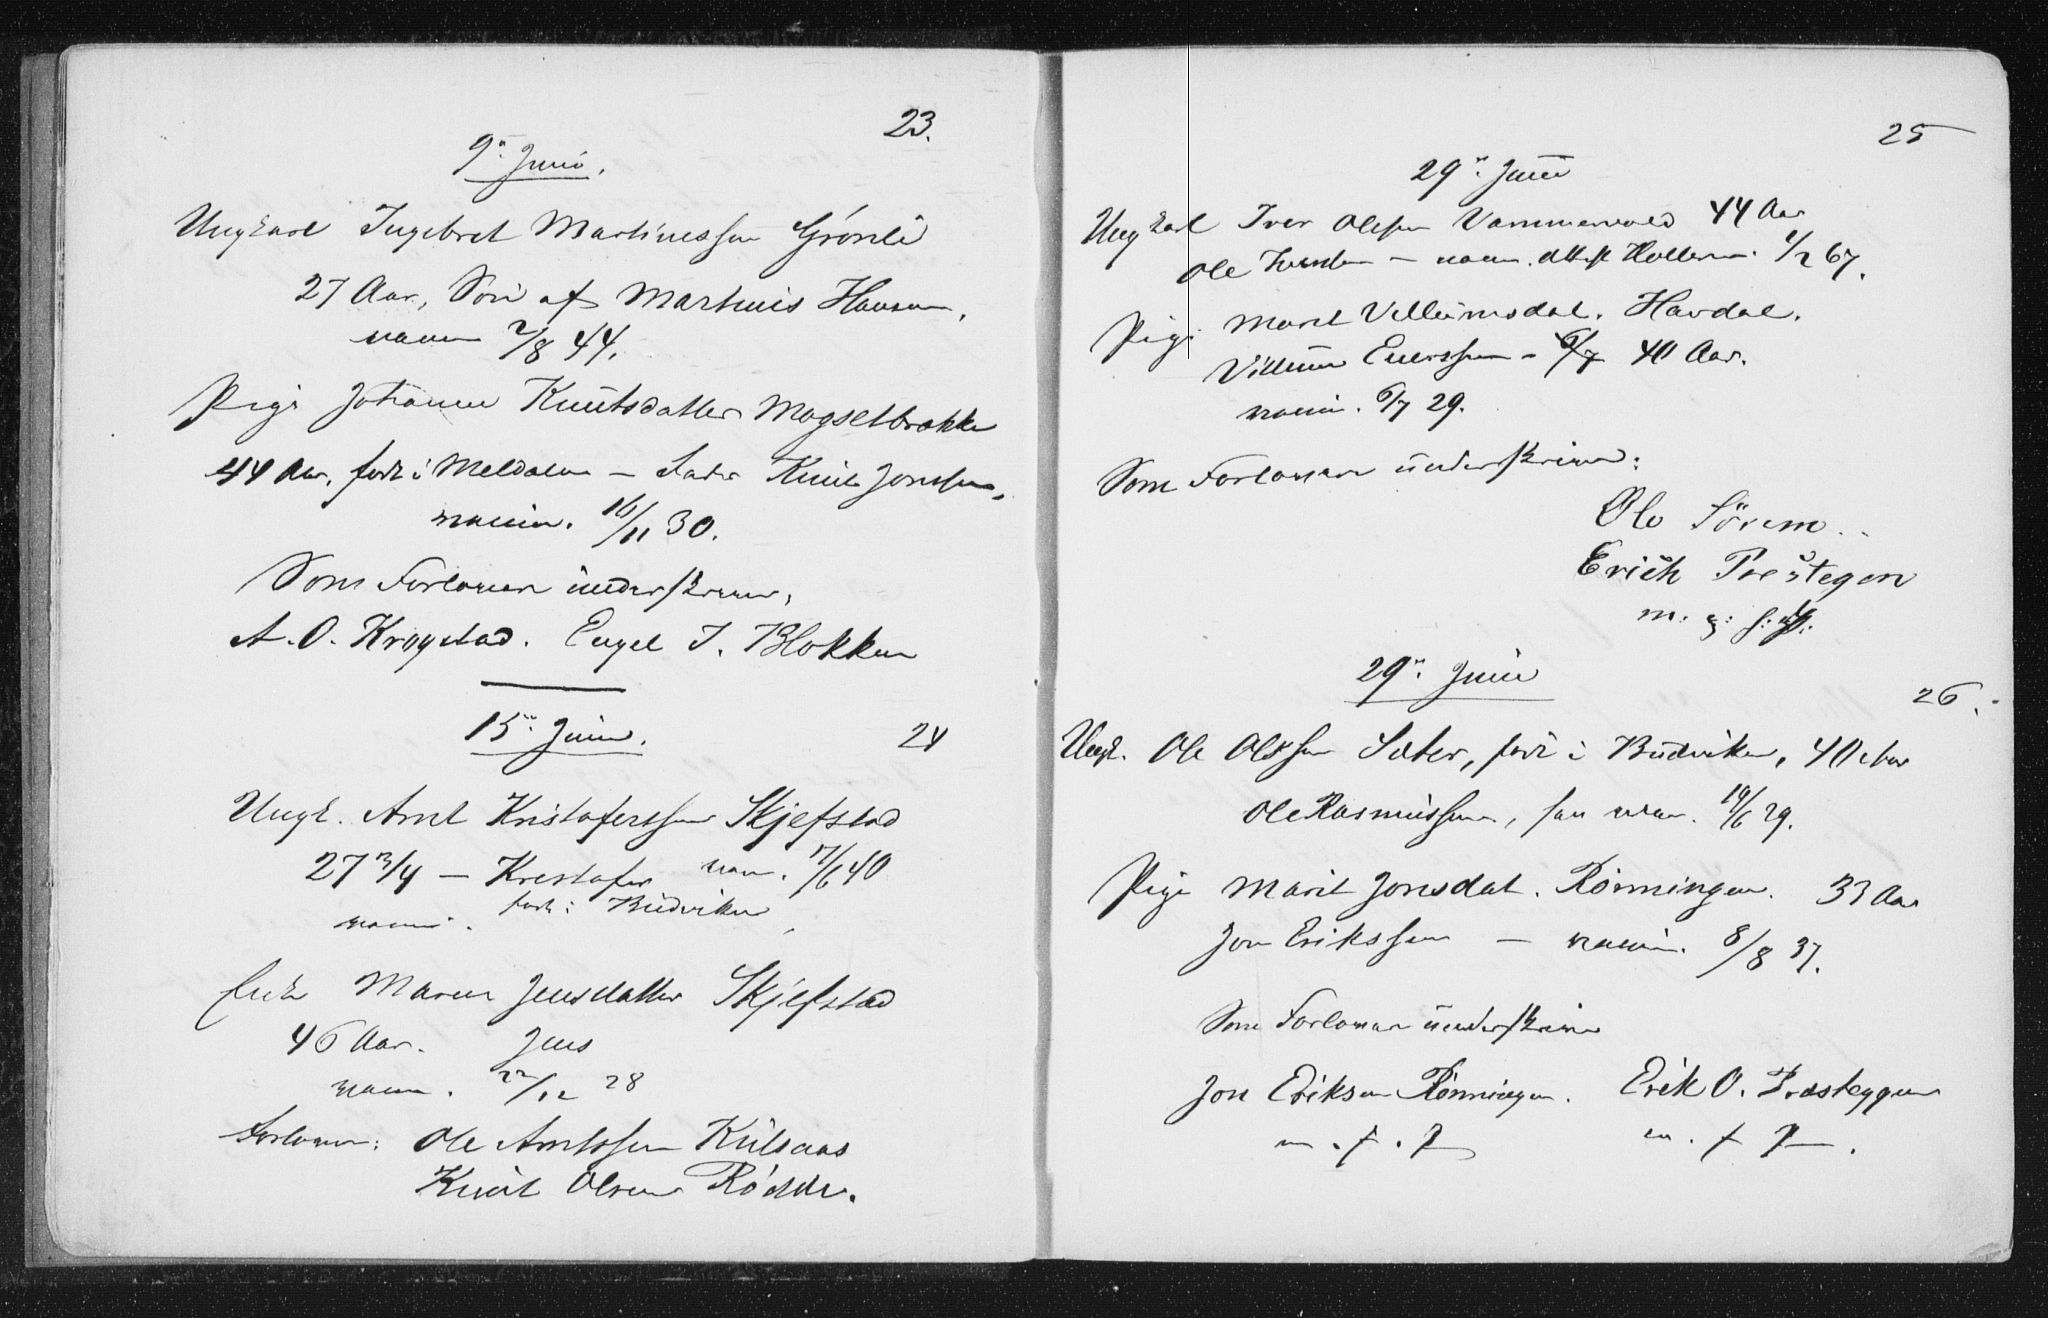 23.
9de Juni.
Ungkarl Ingebret Martinussen Grönli
27 Aar, Søn af Martinus Hansen,
vacc. 2/8 44.
Pige Johanne Knutsdatter Mogsetbrække
44 Aar, født i Meldalen – Fader Knut Jonssen,
vaccin. 16/11 30.
Som Forlovere underskriver,
A. O. Krogstad. Engel J. Blokkum
15de Juni. 24
Ungk. Arnt Kristoferssen Skjefstad
27 3/4 – Kristofer vac. 17/6 40
født i Budviken
vaccin.
Enke Maren Jensdatter Skjefstad
46 Aar. Jens
vaccin. 22/12 28
Forlover: Ole Arntssen Kulsaas
Knut Olsen Rødde.
25
29de Juni
Ungkarl Iver Olssen Vammervold 44 Aar
Ole Iversen – vaccin. Attest 1/2 67.
Pige Marit Villumsdat. Havdal.
Villum Enerssen – 6/7 40 Aar.
vaccin. 6/7 29.
Som Forlovere underskriver:
Ole Sörem
Erich Prestegen
m. p. P.
29de Juni
26.
Ungk. Ole Olssen Sæter, født i Budviken, 40 Aar
Ole Rasmussen, vac. 19/6 29.
Pige Marit Jonsdat. Rønningen. 33 Aar
Jon Erikssen – vaccin. 8/8 37.
Som Forlovere underskriver
Jon Eriksen Rønningen. Erik O. Præsteggen
m. f. P m. f P.